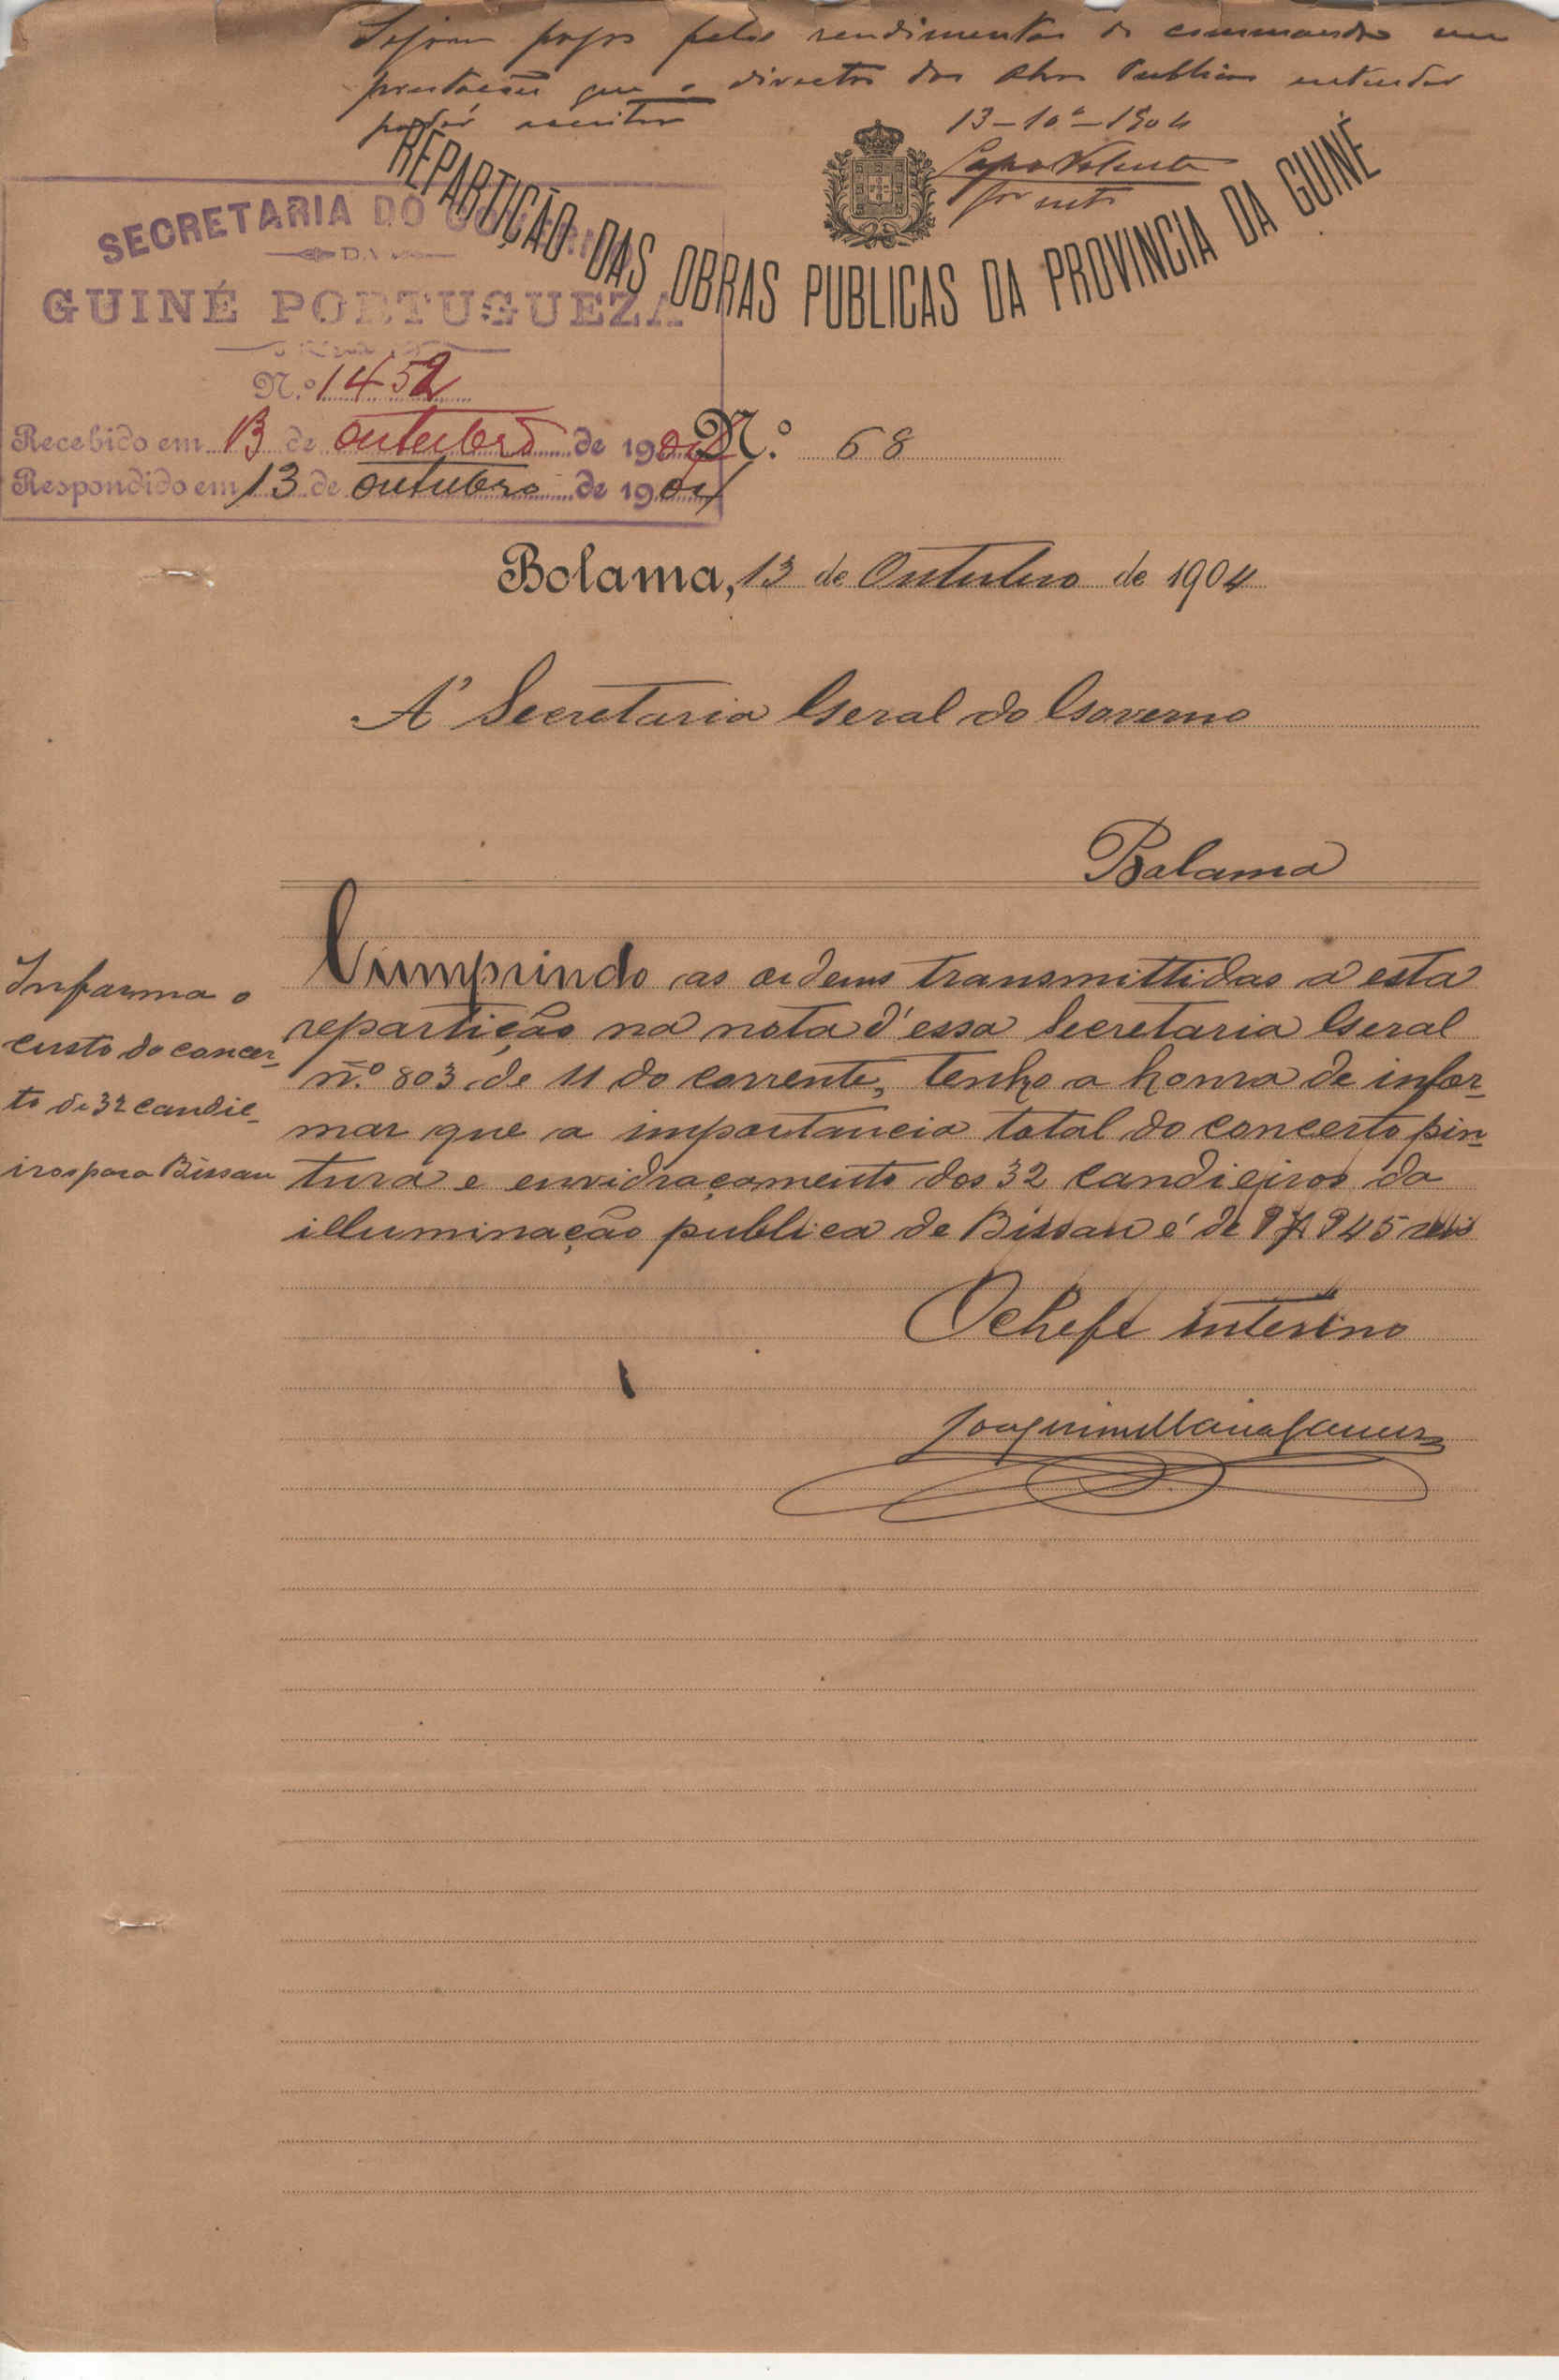 Sejam pagos pelos rendimentos do commando em
prestações que o director das Obras Publicas entender
poder acceitar
13-10º-1904
REPARTIÇÃO DAS OBRAS PUBLICAS DA PROVINCIA DA GUINÉ
SECRETARIA DO GOVERNO
DA
GUINÉ PORTUGUEZA
N.º 1452
Recebido em 13 de outubro de 1904
Respondido em 13 de outubro de 1904
N.º 68
Bolama, 13 de Outubro de 1904
A' Secretaria Geral do Governo
Bolama
Informa o
custo do concer-
to de 32 candie-
iros para Bissau
Cumprindo as ordens transmittidas a esta
repartição na nota d'essa Secretaria Geral
n.º 803 de 11 do corrente, tenho a honra de infor-
mar que a importancia total do concerto pin-
tura e envidraçamento dos 32 candieiros da
illuminação publica de Bissau é de 945 reis
O chefe interino
Joaquim